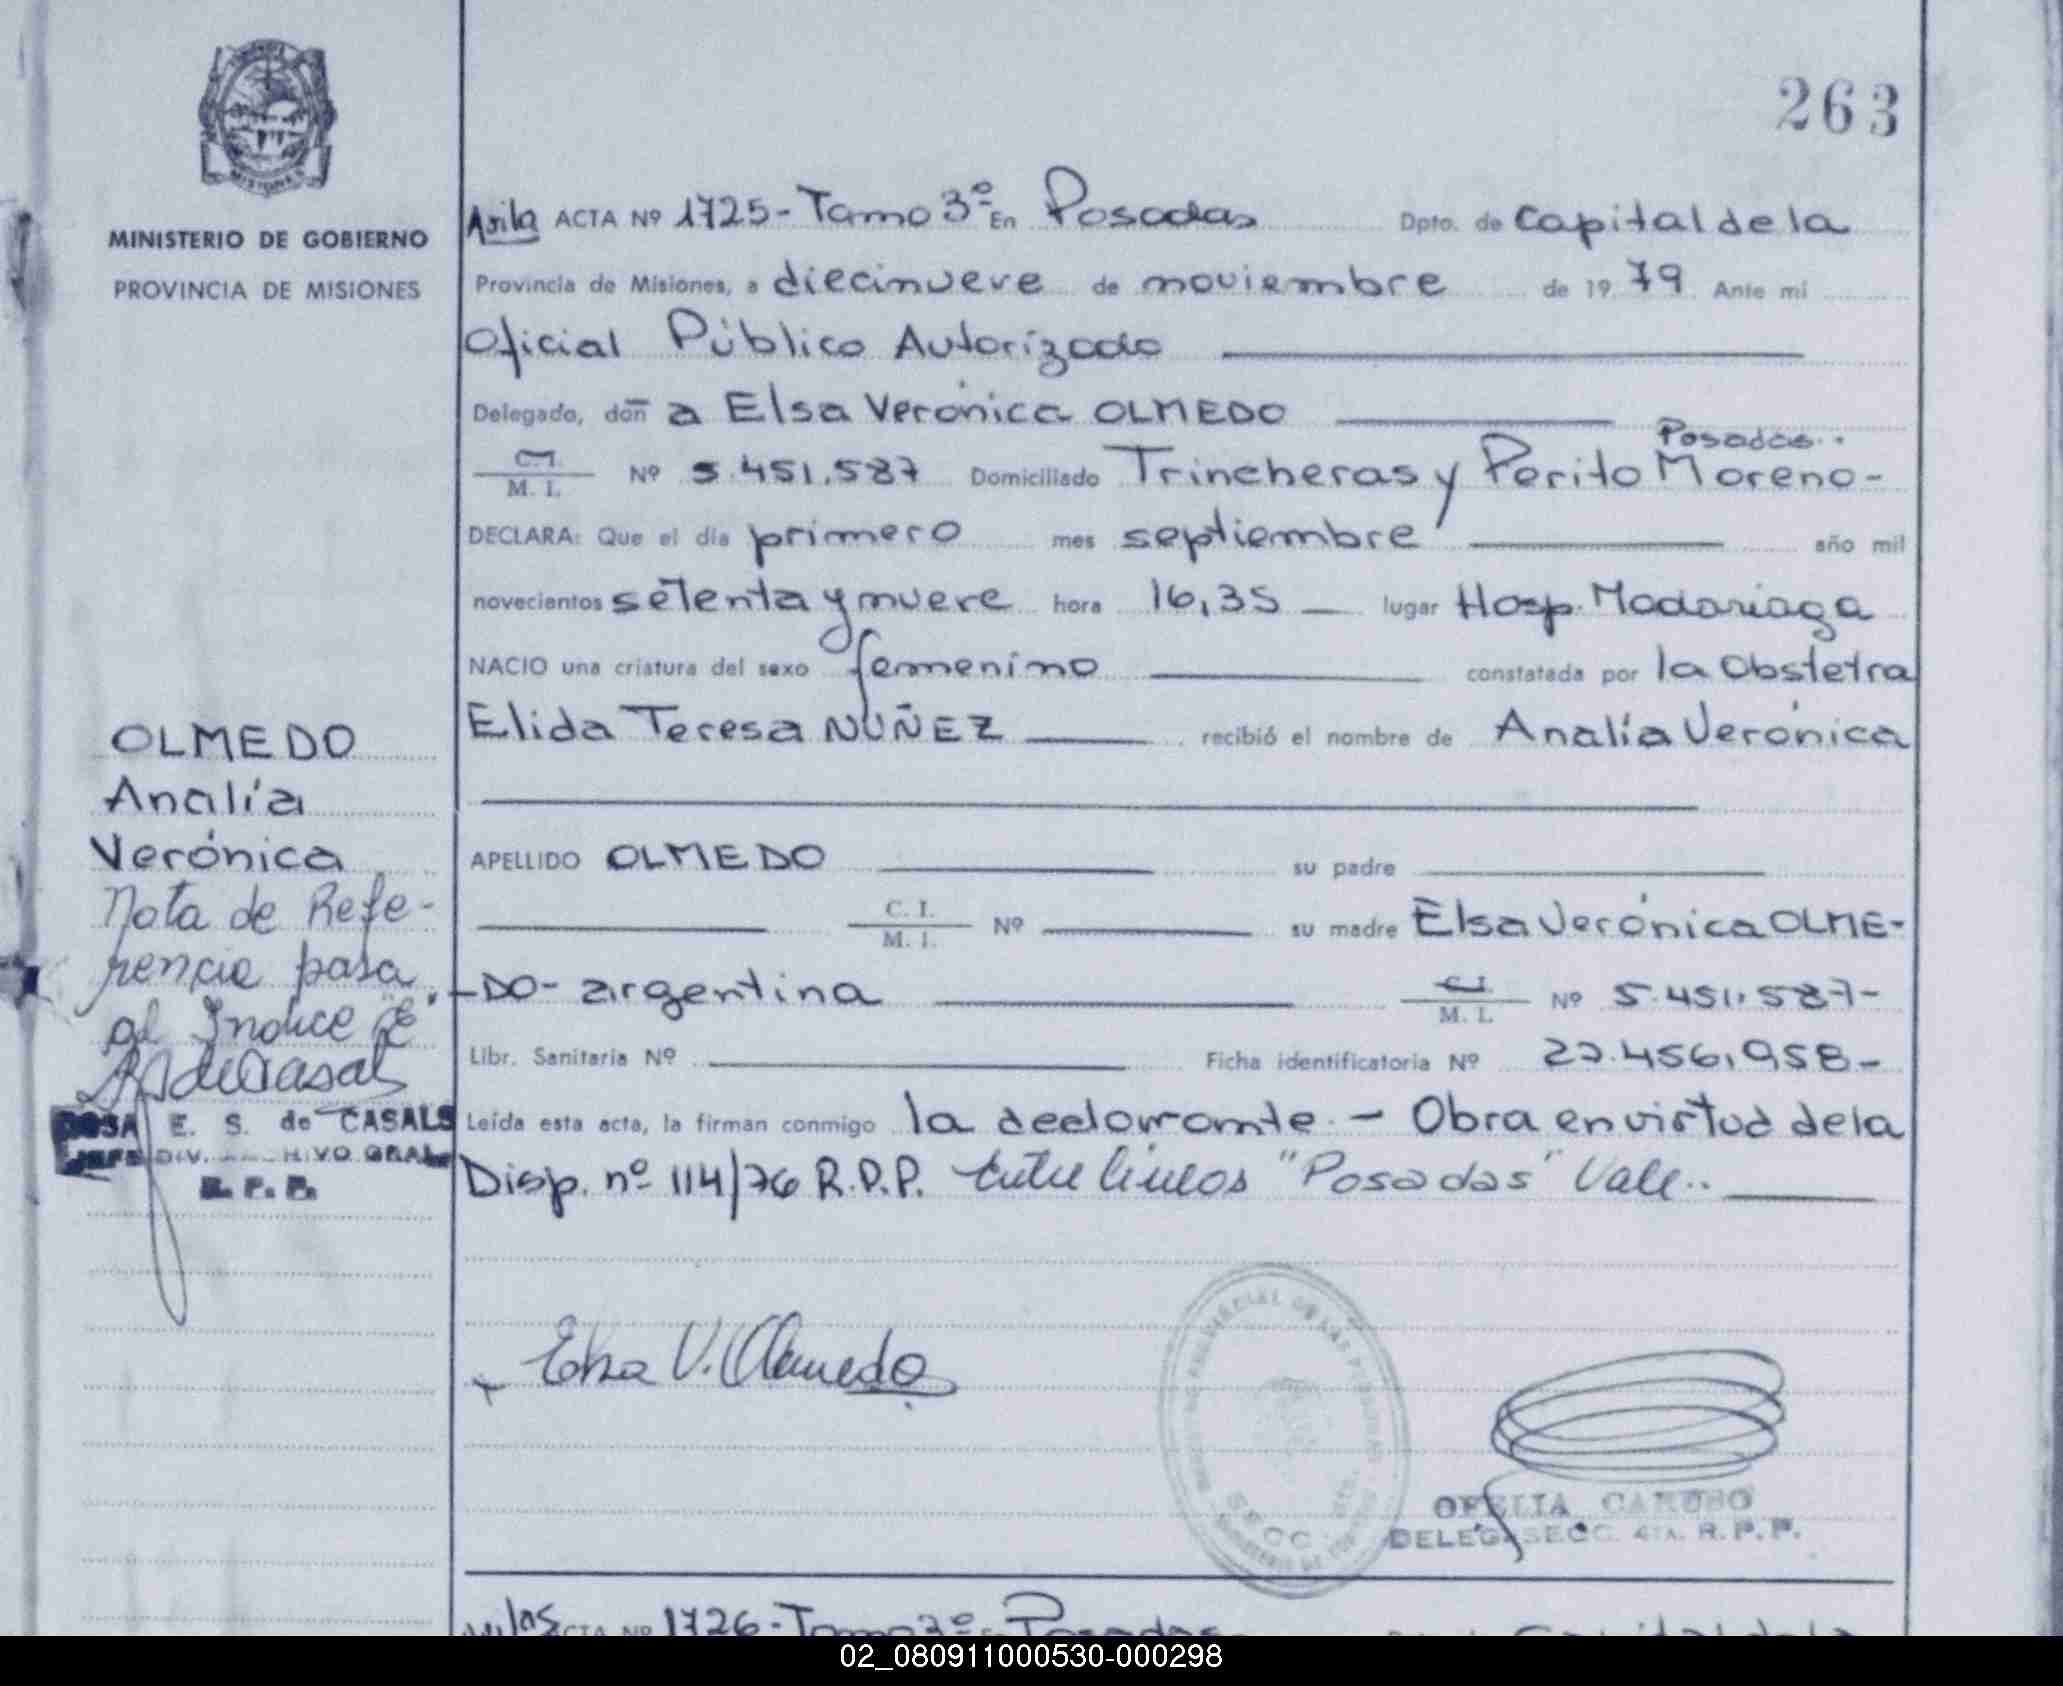 263
MISIONES
MINISTERIO DE GOBIERNO
PROVINCIA DE MISIONES
ACTA Nº 1725- Tomo 3º En Posadas Dpto. de Capital de la
Provincia de Misiones, a diecinueve de noviembre de 1979 Ante mi
Oficial Público Autorizado
Delegado, doña Elsa Verónica OLMEDO
Posadas..
C.I. M. I. Nº 5.451.587 Domiciliado Trincheras y Perito Moreno-
DECLARA: Que el día primero mes septiembre año mil
novecientos setenta y nueve hora 16,35 lugar Hosp. Madariaga
NACIO una criatura del sexo femenino constatada por la Obstetra
Elida Teresa NUÑEZ recibió el nombre de Analía Verónica
APELLIDO OLMEDO su padre
C. I. M. I. Nº su madre Elsa Verónica OLME-
-DO- argentina C.I. M. I. Nº 5.451.587-
Libr. Sanitaria Nº Ficha identificatoria Nº 27.456.958-
Leída esta acta, la firman conmigo la declarante.- Obra en virtud de la
Disp. nº 114/76 R.P.P. Entre líneas "Posadas" Vale..
OLMEDO
Analía
Verónica
Nota de Refe-
rencia pasa
al Indice "E"
E. S. de CASALS
DIV. GRAL
R. P. P.
Elsa V. Olmedo
SECC.
OFELIA CARUSO
DELEG. SECC. 4TA. R.P.P.
ACTA Nº 1726- Tomo 3º En Posadas Capital de la
02_080911000530-000298